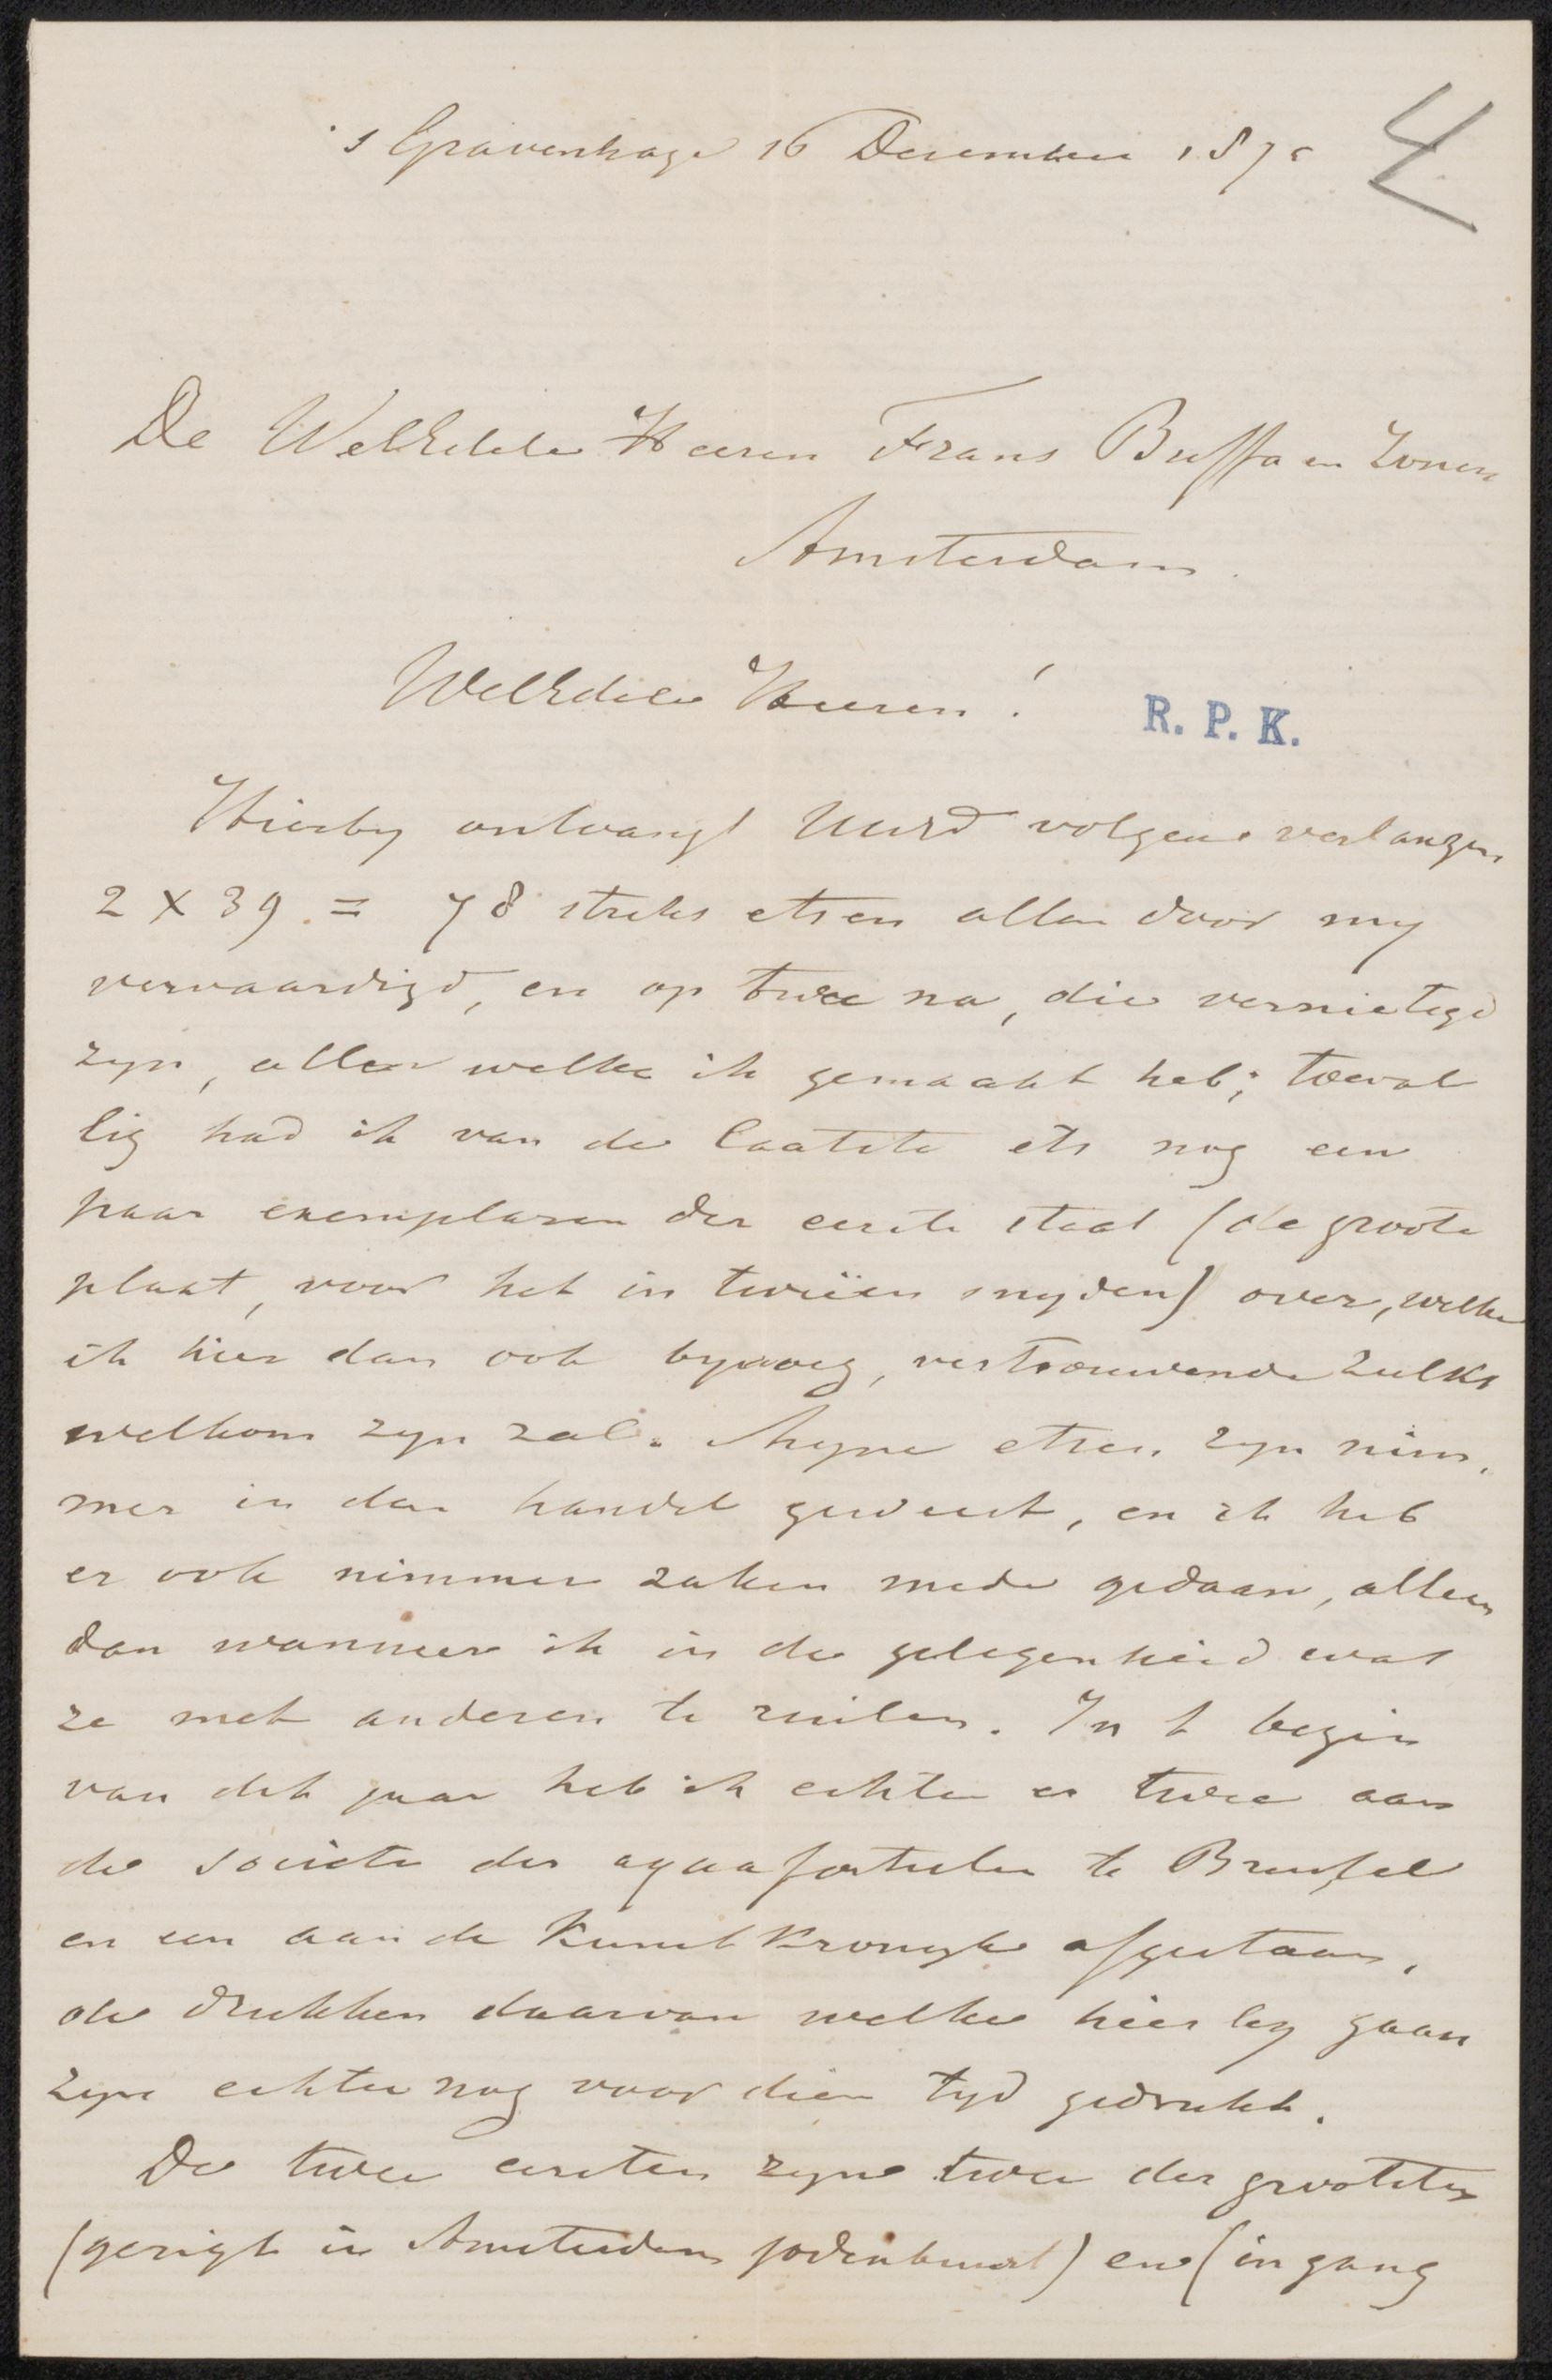 's Gravenhage 16 December 187
4
De WelEdele Heeren Frans Buffa en Zonen
Amsterdam.
WelEdele Heeren!
R. P. K.
Hierby ontvangt UwEd volgens verlangen
2 x 39 = 78 stuks etsen allen door my
vervaardigd, en op twee na, die vernietigd
zyn, allen welke ik gemaakt heb; toeval
lig had ik van de laatste ets nog een
paar exemplaren der eerste staat (de groote
plaat, voor het in tweëen snyden) over, welke
ik hier dan ook byvoeg, vertrouwende zulks
welkom zyn zal. Myne etsen zyn nim,
mer in den handel geweest, en ik heb
er ook nimmer zaken mede gedaan, alleen
dan wanneer ik in de gelegenheid was
ze met anderen te ruilen. In t begin
van dit jaar heb ik echter er twee aan
de societe der aquafortisten te Brussel
en een aan de Kunst Kronyk afgestaan,
de drukken daarvan welke hier by gaan
zyn echter nog voor dien tyd gedrukt.
De twee eersten zyn twee der grootsten
(gezigt in Amsterdam jodenbuurt) en (ingang